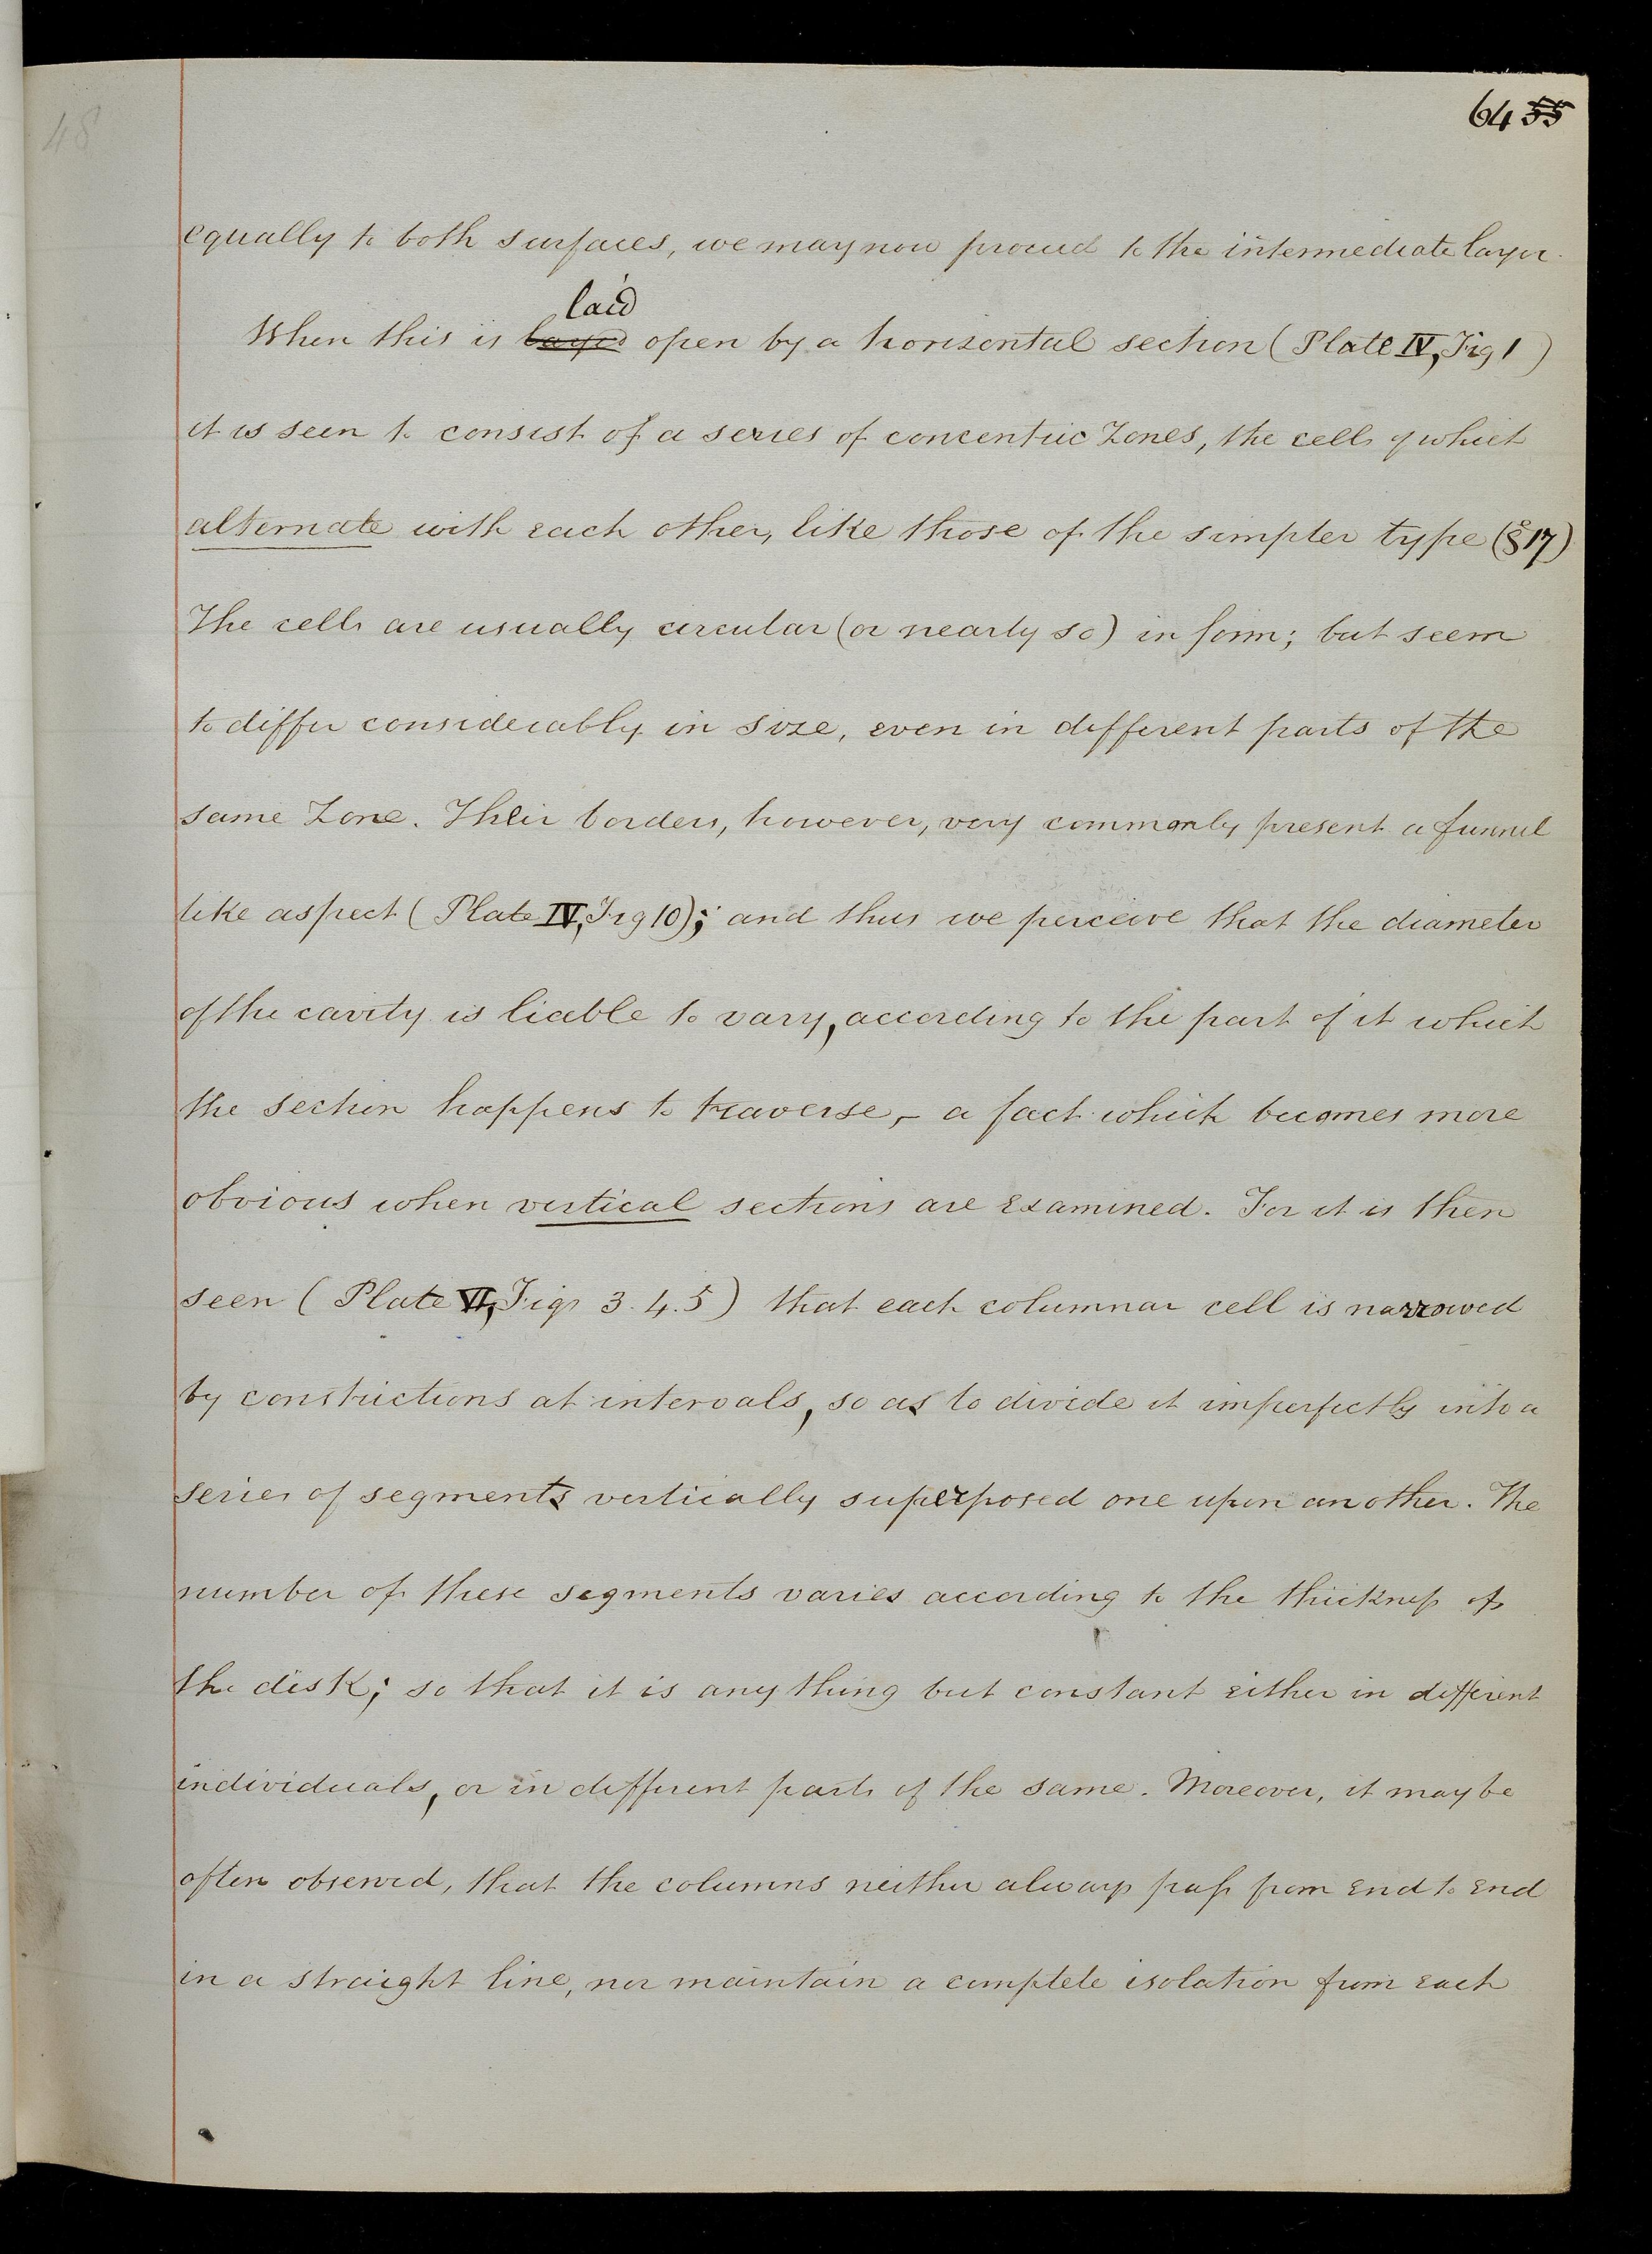 48
64 55
equally to both surfaces, we may now proceed to the intermediate layer.
laid
When this is layed open by a horizontal section (Plate IV, Fig 1)
it is seen to consist of a series of concentric Zones, the cells of which
alternate with each other, like those of the simpler type (§17)
The cells are usually circular (or nearly so) in form; but seem
to differ considerably in size, even in different parts of the
same Zone. Their borders, however, very commonly present a funnel
like aspect (Plate IV, Fig 10); and thus we perceive that the diameter
of the cavity is liable to vary, according to the part of it which
the section happens to traverse, – a fact which becomes more
obvious when vertical sections are examined. For it is then
seen (Plate VI, Figs 3. 4. 5) that each columnar cell is narrowed
by constrictions at intervals, so as to divide it imperfectly into a
series of segments vertically superposed one upon another. The
number of these segments varies according to the thickness of
the disk; so that it is any thing but constant either in different
individuals, or in different parts of the same. Moreover, it may be
often observed, that the columns neither always pass from end to end
in a straight line, nor maintain a complete isolation from each